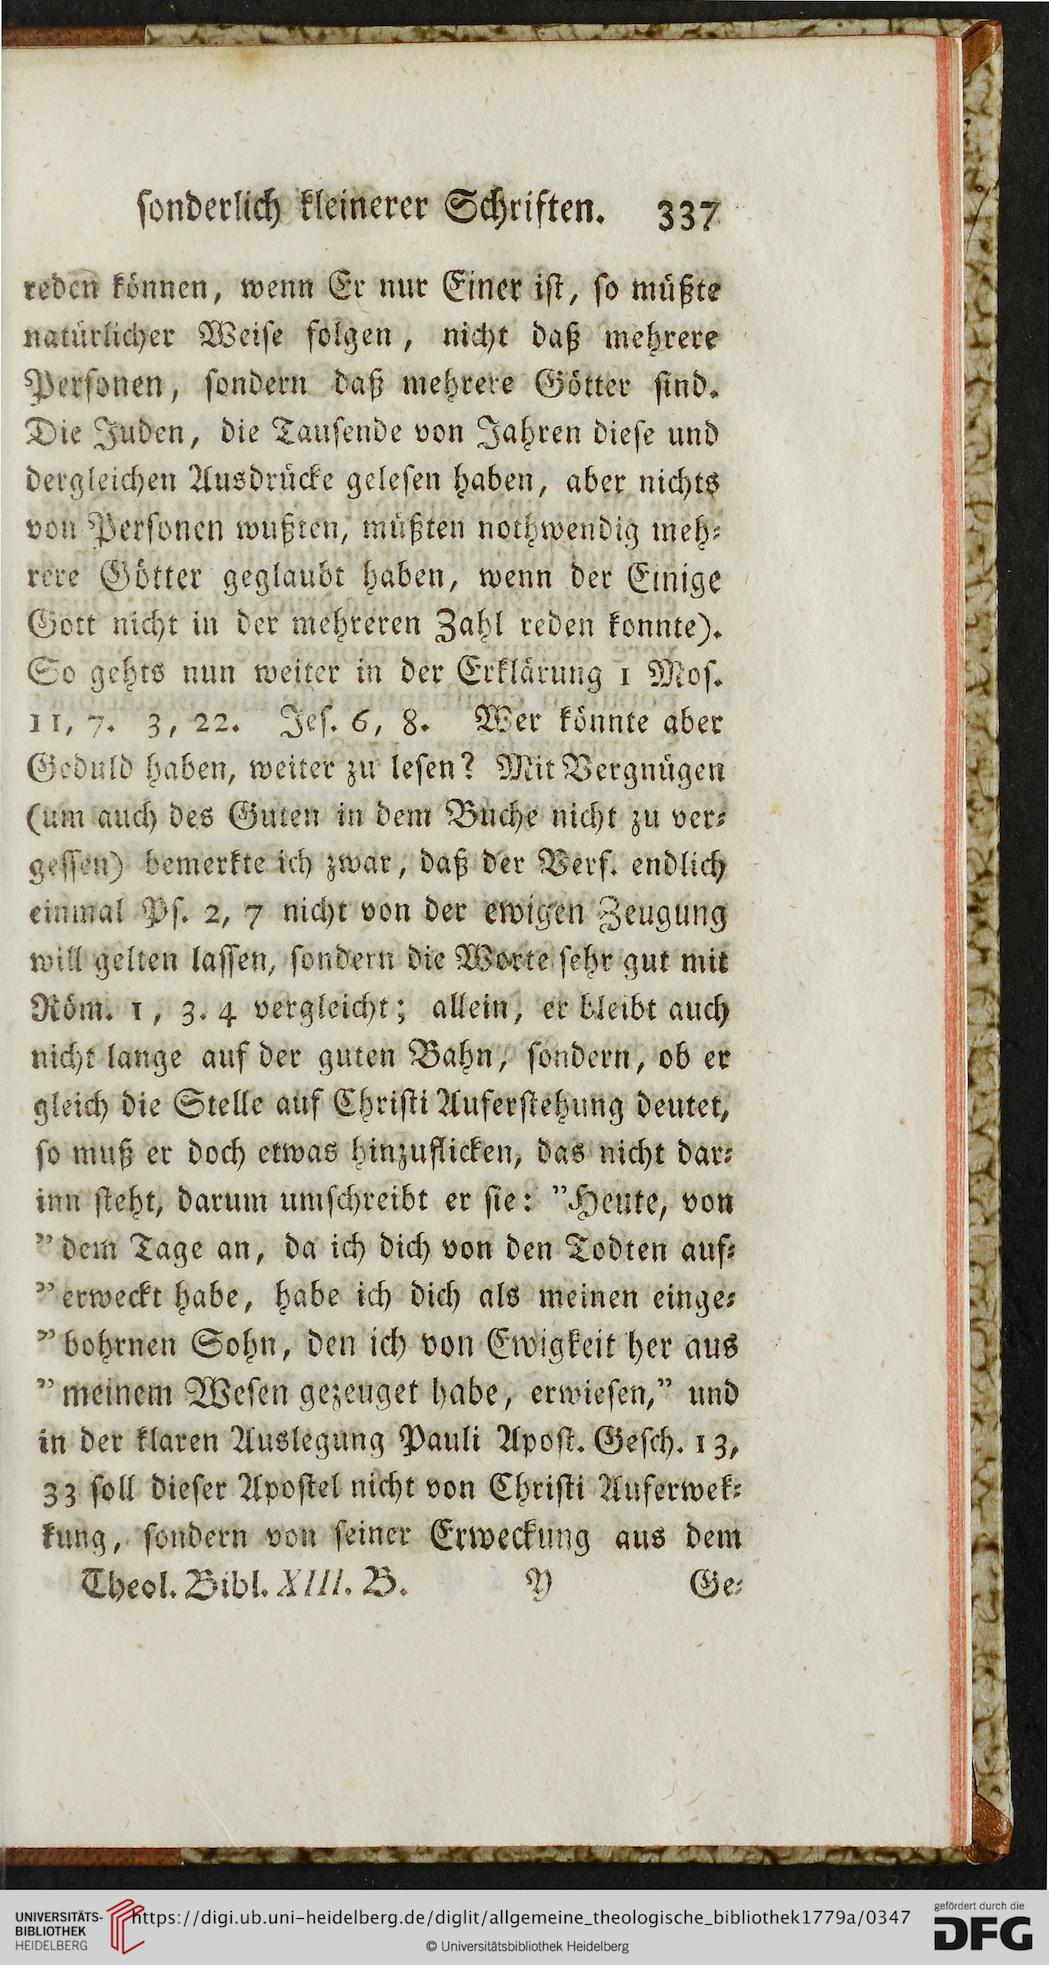 sonderlich kleinerer Schriften. 337
reden können, wenn Er nur Einer ist, so müßte
natürlicher Weise folgen, nicht daß mehrere
Personen, sondern daß mehrere Götter sind.
Die Juden, die Tausende von Jahren diese und
dergleichen Ausdrücke gelesen haben, aber nichts
von Personen wußten, müßten nothwendig meh⸗
rere Götter geglaubt haben, wenn der Einige
Gott nicht in der mehreren Zahl reden konnte).
So gehts nun weiter in der Erklärung 1 Mos.
11, 7. 3, 22. Jes. 6, 8. Wer könnte aber
Geduld haben, weiter zu lesen? Mit Vergnügen
(um auch des Guten in dem Buche nicht zu ver⸗
gessen) bemerkte ich zwar, daß der Verf. endlich
einmal Ps. 2, 7 nicht von der ewigen Zeugung
will gelten lassen, sondern die Worte sehr gut mit
Röm. 1, 3. 4 vergleicht; allein, er bleibt auch
nicht lange auf der guten Bahn, sondern, ob er
gleich die Stelle auf Christi Auferstehung deutet,
so muß er doch etwas hinzuflicken, das nicht dar⸗
inn steht, darum umschreibt er sie: ”Heute, von
”dem Tage an, da ich dich von den Todten auf⸗
”erweckt habe, habe ich dich als meinen einge⸗
”bohrnen Sohn, den ich von Ewigkeit her aus
”meinem Wesen gezeuget habe, erwiesen,” und
in der klaren Auslegung Pauli Apost. Gesch. 13,
33 soll dieser Apostel nicht von Christi Auferwek⸗
kung, sondern von seiner Erweckung aus dem
Theol. Bibl. XIII. B. Y Ge⸗
UNIVERSITÄTS-
BIBLIOTHEK
HEIDELBERG
https://digi.ub.uni-heidelberg.de/diglit/allgemeine_theologische_bibliothek1779a/0347
© Universitätsbibliothek Heidelberg
gefördert durch die
DFG